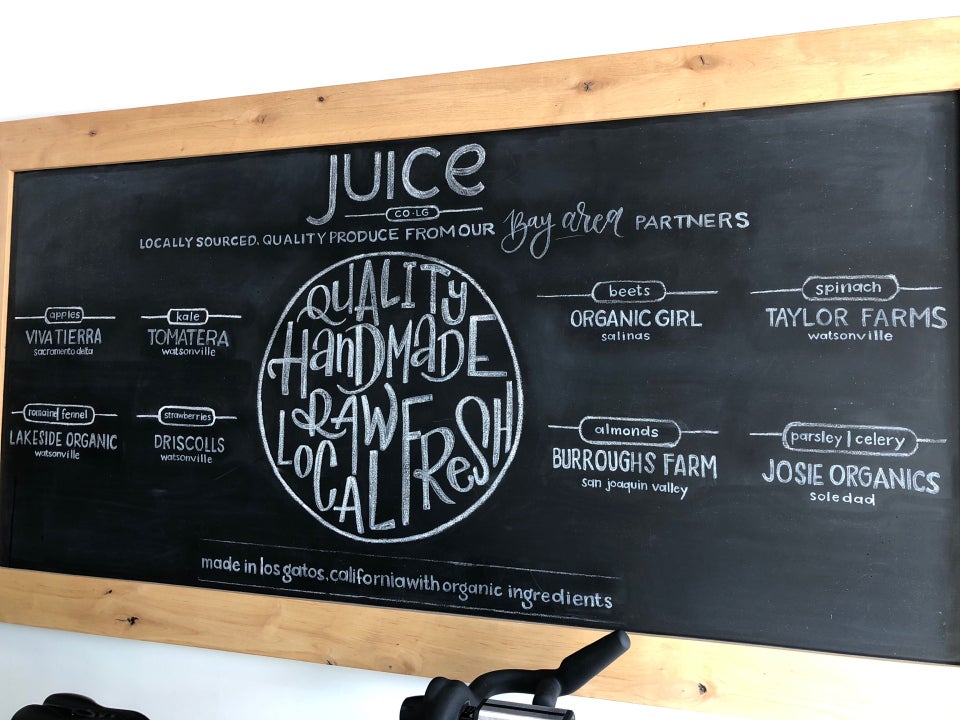 JUICE
CO·LG
LOCALLY SOURCED, QUALITY PRODUCE FROM OUR Bay area PARTNERS
apples
VIVA TIERRA
sacramento delta
kale
TOMATERA
watsonville
romaine| fennel
LAKESIDE ORGANIC
watsonville
strawberries
DRISCOLLS
watsonville
QUALITY
HANDMADE
RAW FRESH
LOCAL
beets
ORGANIC GIRL
salinas
spinach
TAYLOR FARMS
watsonville
almonds
BURROUGHS FARM
san joaquin valley
parsley | celery
JOSIE ORGANICS
soledad
made in los gatos, california with organic ingredients